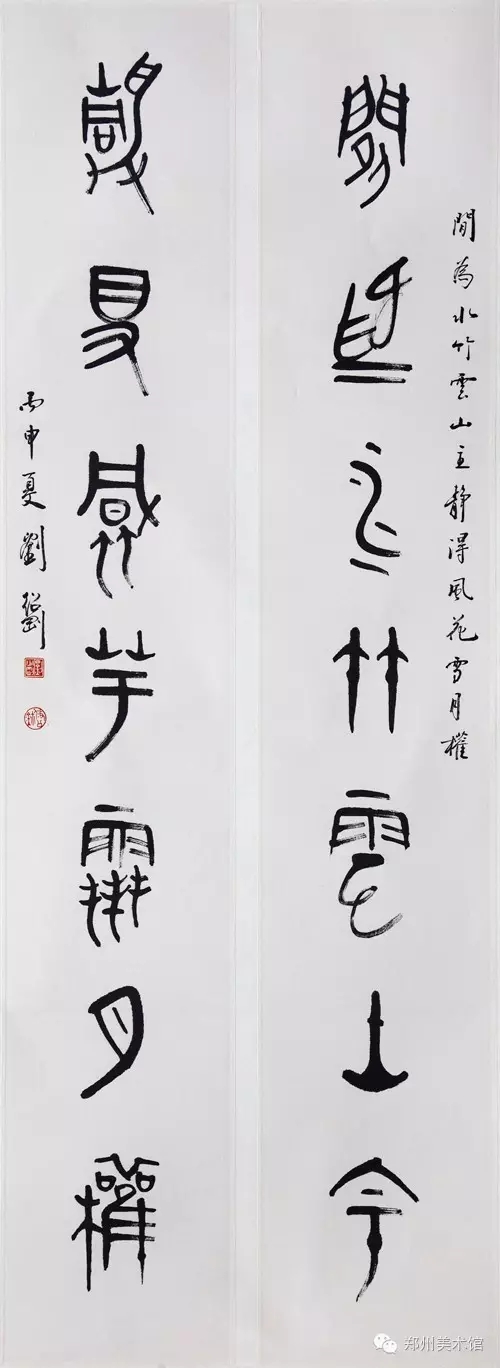 閒為水竹雲山主靜得風花雪月權
閒為水竹雲山主
靜得風花雪月權
丙申夏劉
郑州美术馆